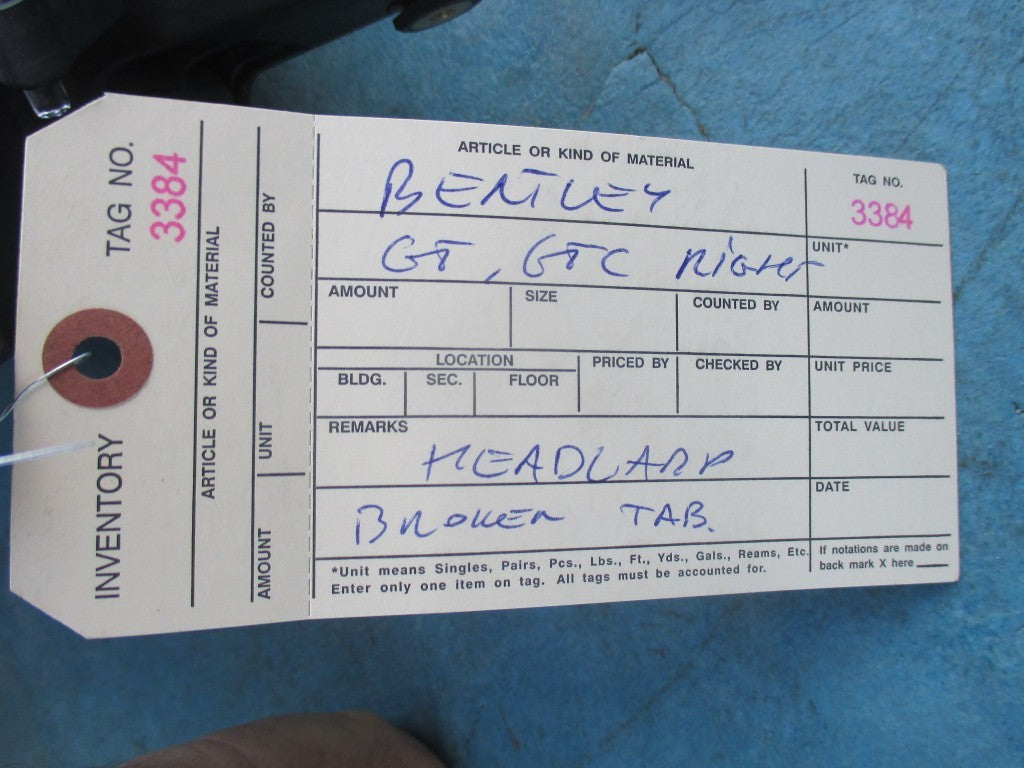 INVENTORY TAG NO.
3384
ARTICLE OR KIND OF MATERIAL
AMOUNT UNIT COUNTED BY
ARTICLE OR KIND OF MATERIAL
BENTLEY
TAG NO.
3384
GT, GTC RIGHT
UNIT*
AMOUNT SIZE COUNTED BY AMOUNT
LOCATION PRICED BY CHECKED BY UNIT PRICE
BLDG. SEC. FLOOR
REMARKS TOTAL VALUE
HEADLAMP
DATE
BROKEN TAB.
*Unit means Singles, Pairs, Pcs., Lbs., Ft., Yds., Gals., Reams, Etc.
Enter only one item on tag. All tags must be accounted for.
If notations are made on
back mark X here